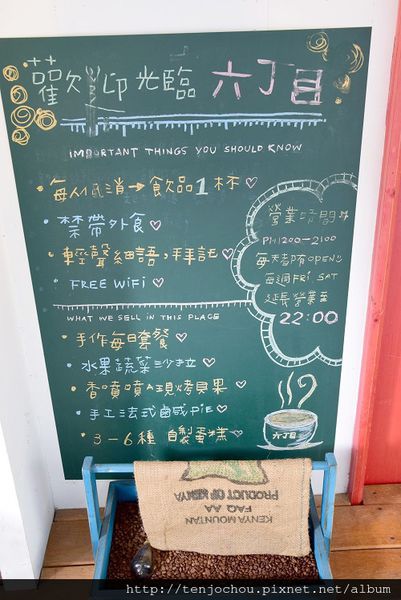 歡迎光臨 六丁目
IMPORTANT THINGS YOU SHOULD KNOW
• 每人低消→飲品1杯♡
• 禁帶外食♡
• 輕聲細語，拜託♡
• FREE WiFi ♡
營業時間
PM1200-2100
每天都有OPEN
每週FRI SAT
延長營業至
22:00
WHAT WE SELL IN THIS PLACE
• 手作每日套餐♡
• 水果蔬菜沙拉♡
• 香噴噴現烤貝果♡
• 手工法式鹹派PIE♡
• 3-6種 自製蛋糕♡
六丁目
KENYA MOUNTAN
FAQ AA
PRODUCT OF KENYA
http://tenjochou.pixnet.net/album